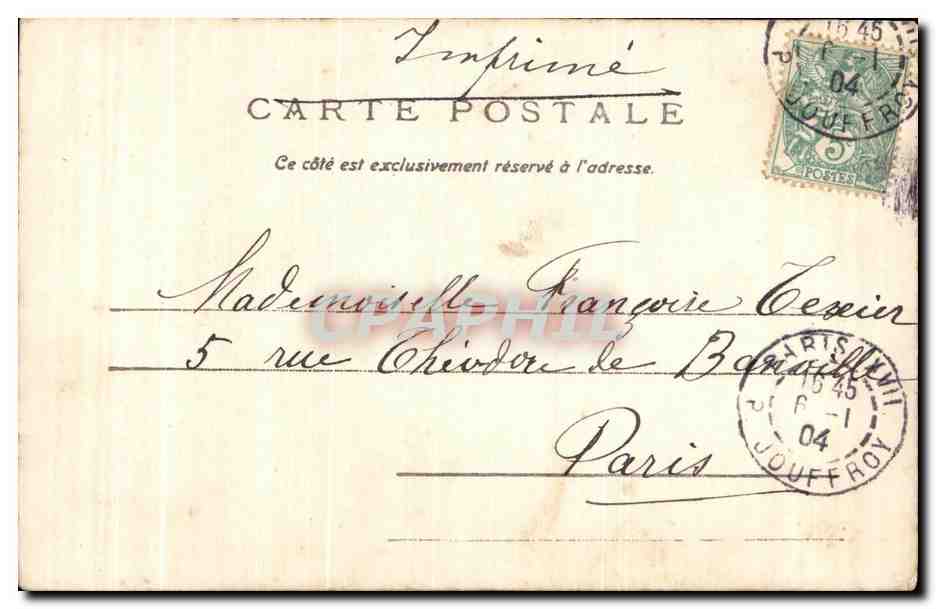 Imprimé
CARTE POSTALE
Ce côté est exclusivement réservé à l'adresse.
16 45
6 -1
04
P. JOUFFROY
5
POSTES
Mademoiselle Françoise Texier
CPAPHIL
5 rue Théodore de Banville
Paris
PARIS XVII
16 45
6 -1
04
P. JOUFFROY